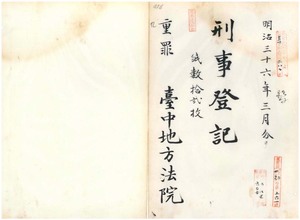 明治三十六年三月分
刑事登記
紙數拾弐枚
重罪
臺中地方法院